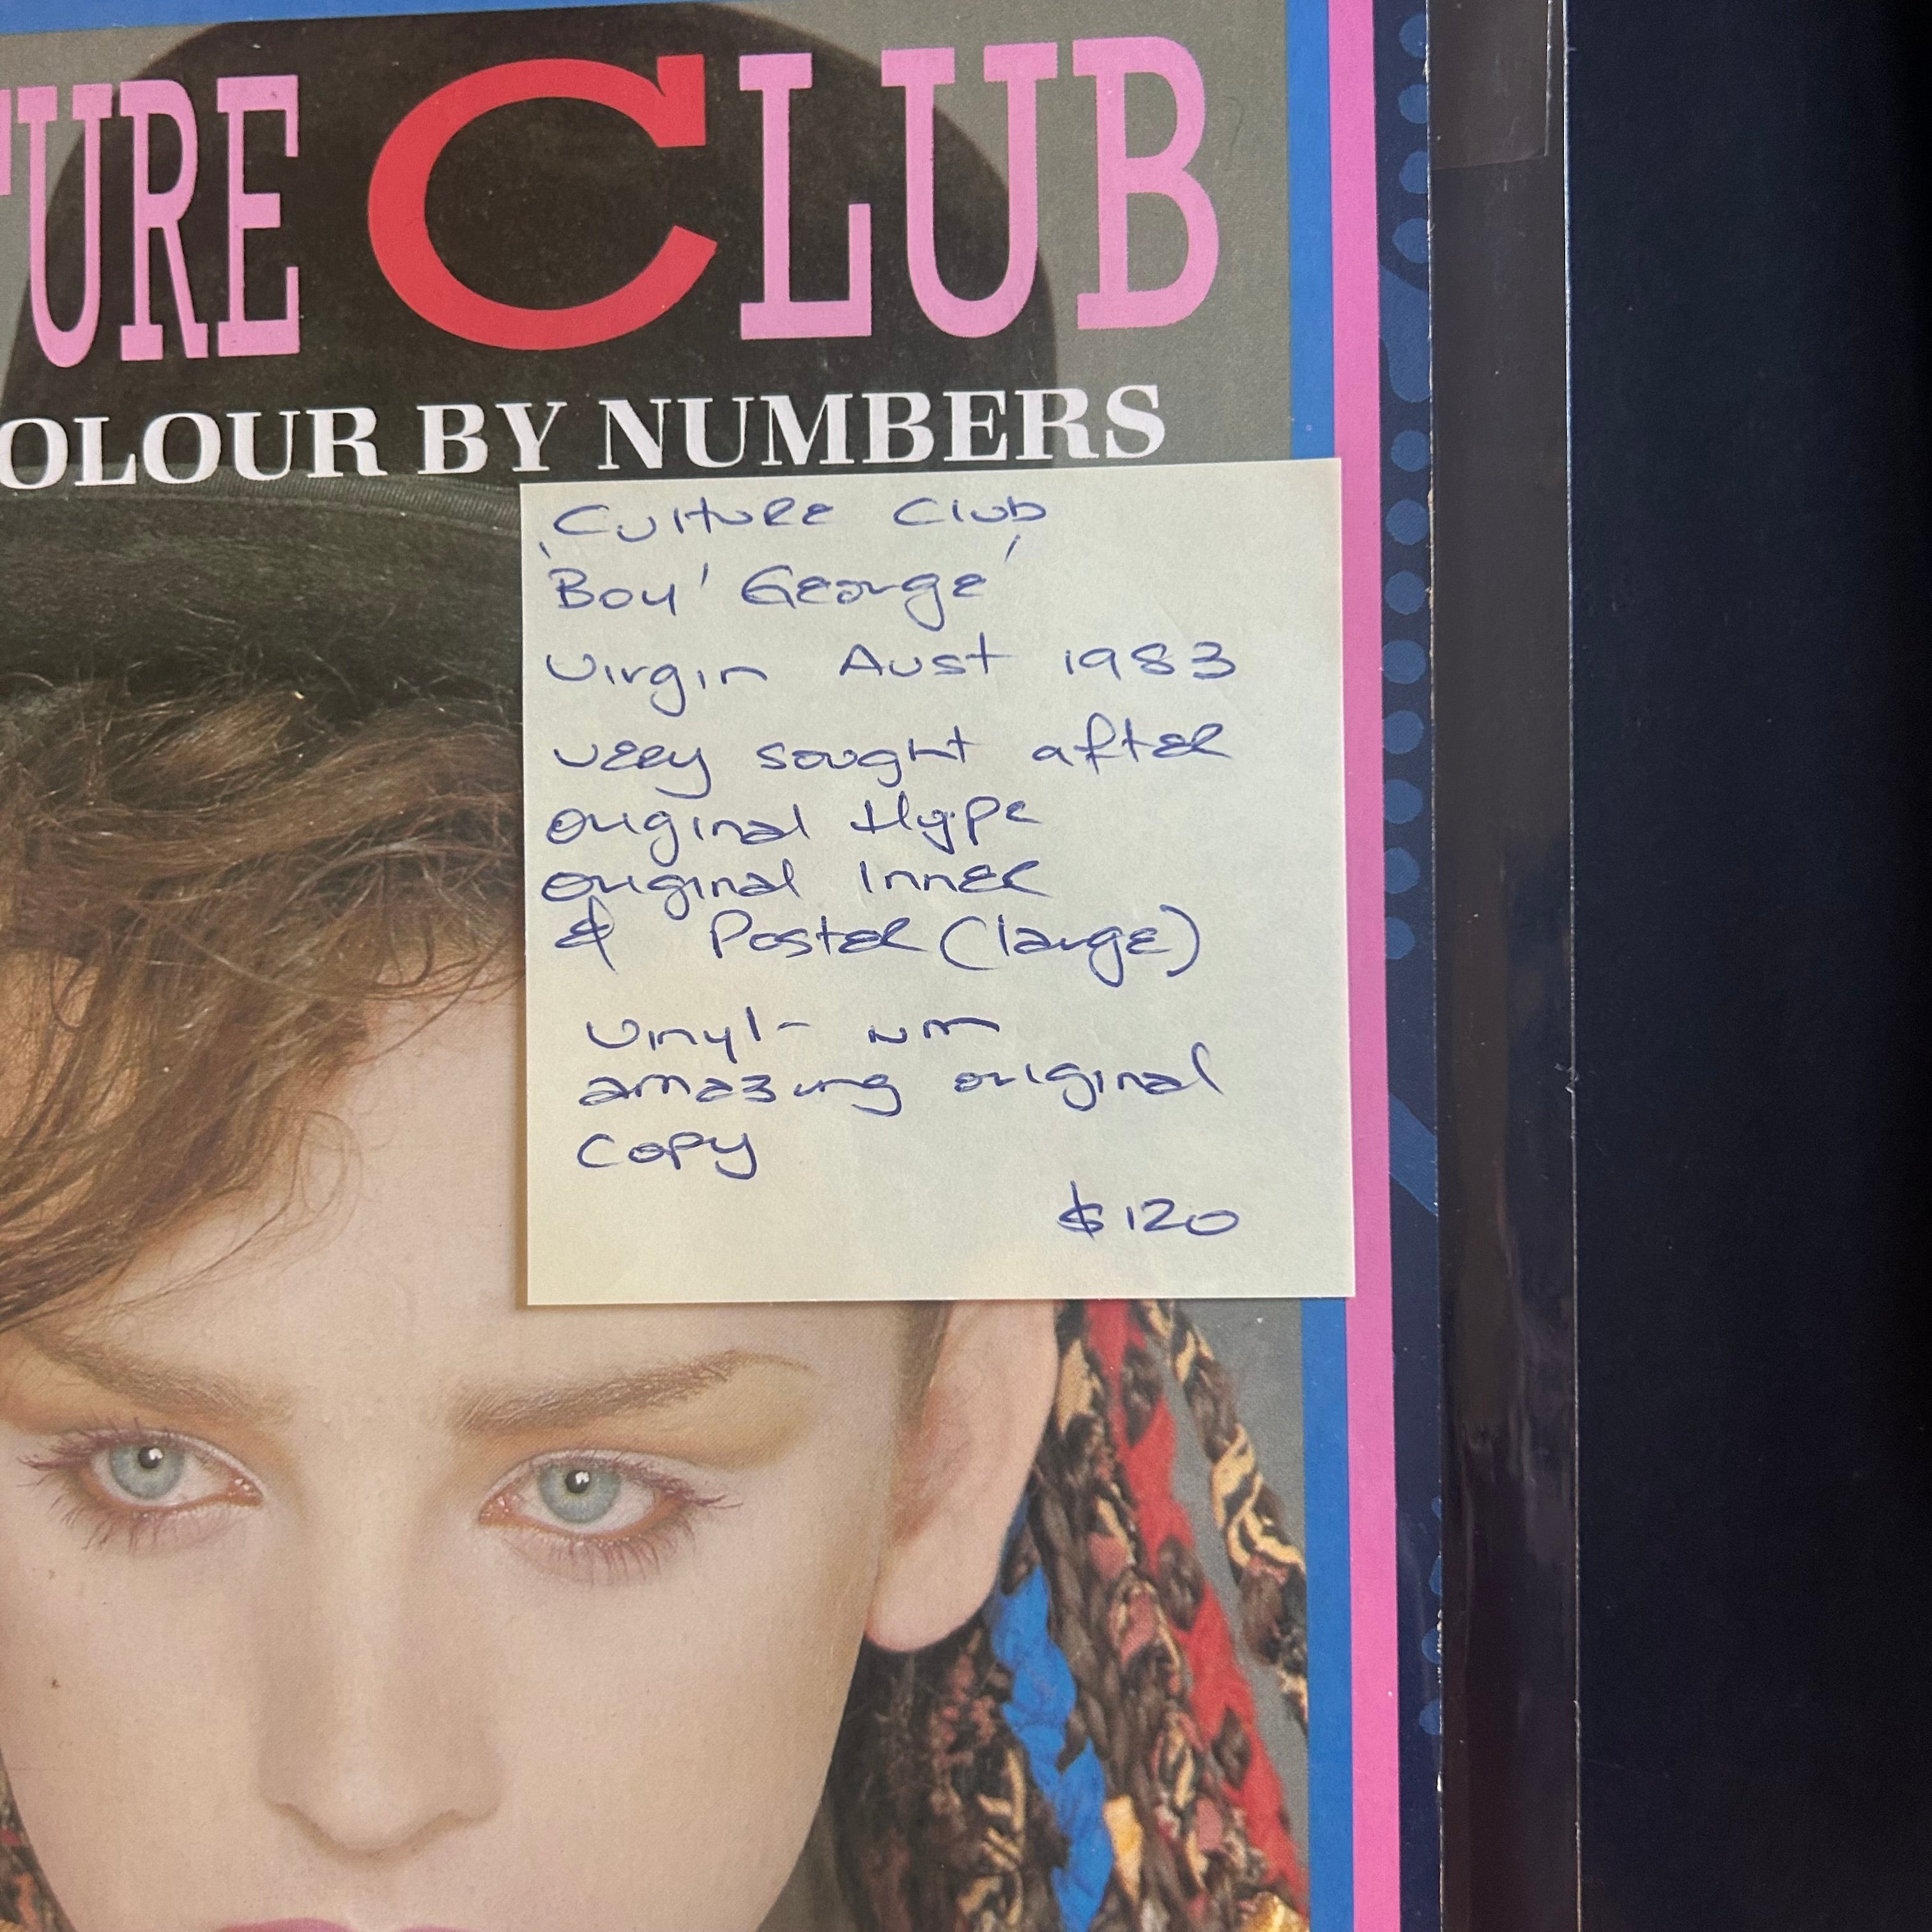 TURE CLUB
OLOUR BY NUMBERS
Culture Club
'Boy' George'
Virgin Aust 1983
very sought after
original Hype
original Inner
& Poster (large)
Vinyl- NM
amazing original
copy
$120